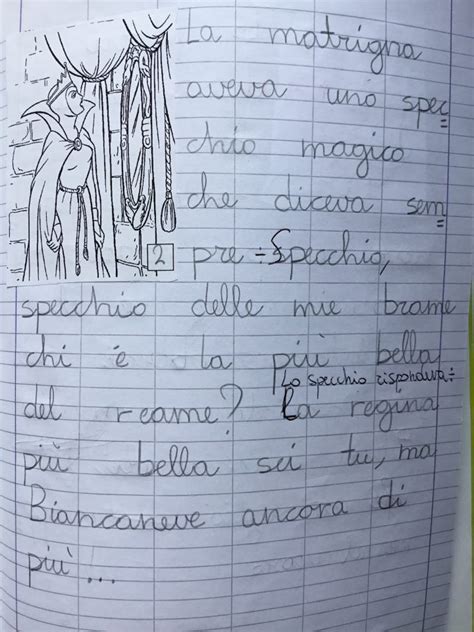 La matrigna
aveva uno spec
chio magico
che diceva sem
2
pre ÷ Specchio,
specchio delle mie brame
chi é la più bella
Lo specchio rispondeva ÷
del reame? La regina
più bella sei tu, ma
Biancaneve ancora di
più ...